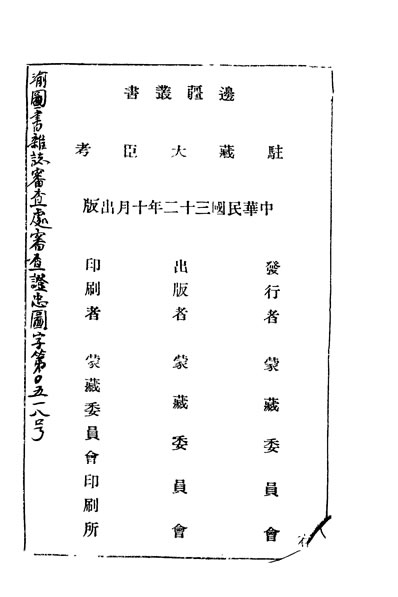 邊疆叢書
駐藏大臣考
中華民國三十二年十月出版
發行者 蒙藏委員會
出版者 蒙藏委員會
印刷者 蒙藏委員會印刷所
渝圖書雜誌審查處審查證忠圖字第0五一八号